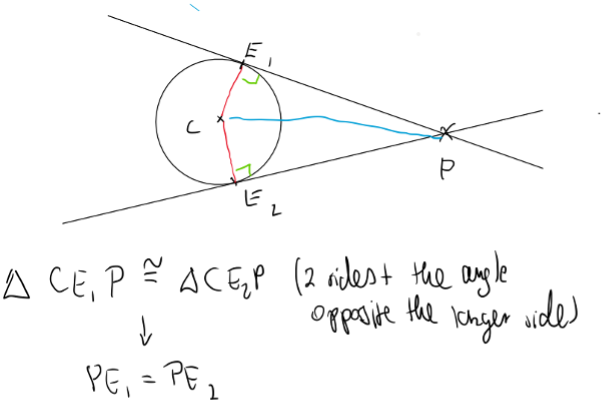 E₁
C
P
E₂
△ CE₁P ≅ △CE₂P (2 sides + the angle
opposite the longer side)
↓
PE₁ = PE₂